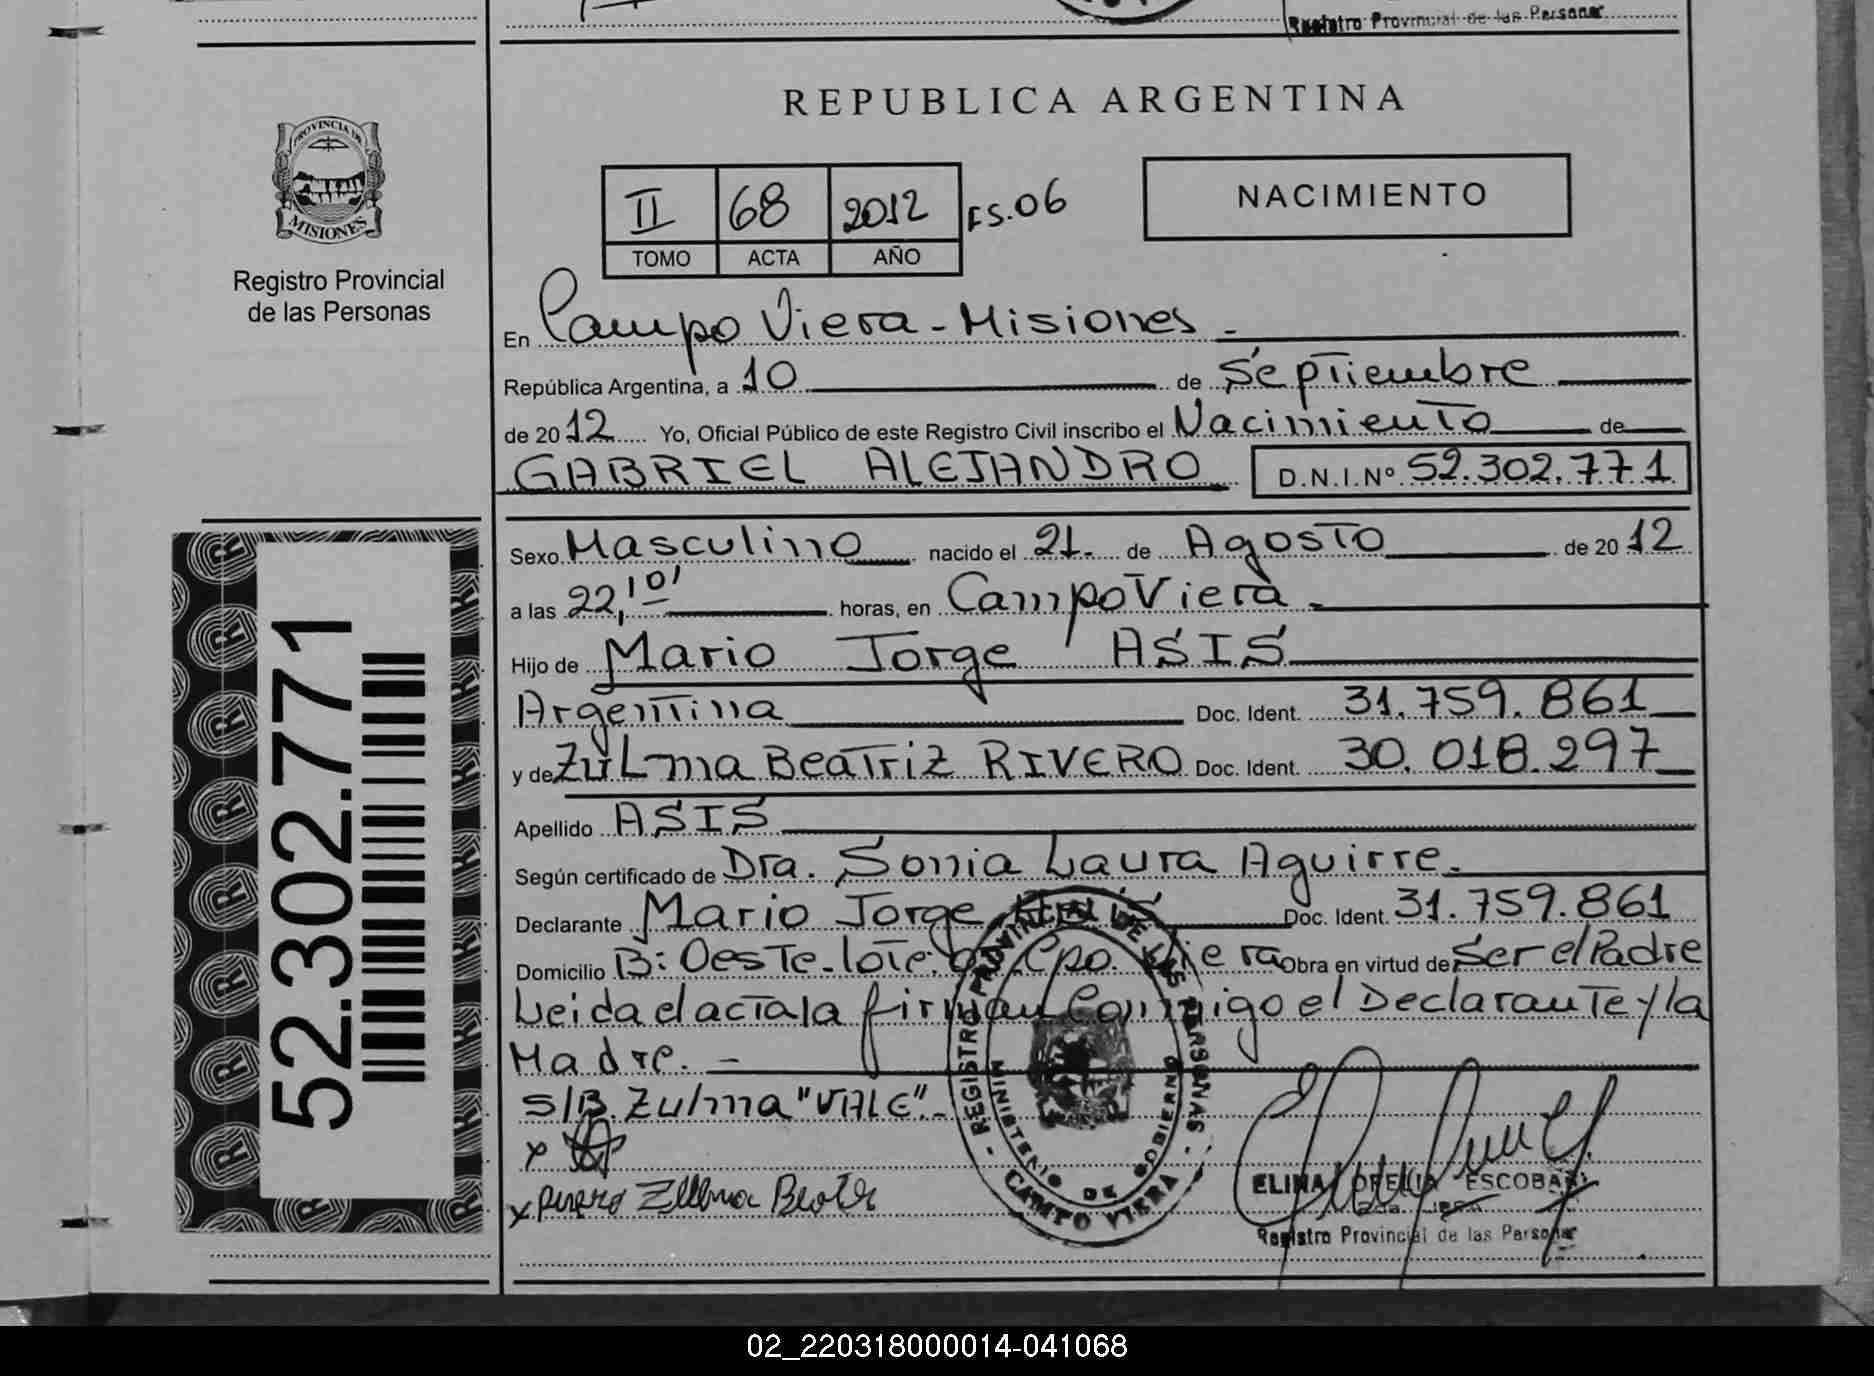 Registro Provincial de las Personas
REPUBLICA ARGENTINA
PROVINCIA DE
MISIONES
Registro Provincial
de las Personas
II 68 2012 FS.06
TOMO ACTA AÑO
NACIMIENTO
En Campo Viera - Misiones -
República Argentina, a 10 de Septiembre
de 2012 Yo, Oficial Público de este Registro Civil inscribo el Nacimiento de
GABRIEL ALEJANDRO D.N.I.Nº 52.302.771
Sexo Masculino nacido el 21 de Agosto de 2012
a las 22,10' horas, en Campo Viera -
Hijo de Mario Jorge ASIS
Argentina Doc. Ident. 31.759.861
y de Zulma Beatriz RIVERO Doc. Ident. 30.018.297
Apellido ASIS
Según certificado de Dra. Sonia Laura Aguirre.
Declarante Mario Jorge ASIS Doc. Ident. 31.759.861
Domicilio B: Oeste-lote Cpo. Viera Obra en virtud de Ser el Padre
Leida el acta la firman Conmigo el Declarante y la
Madre. -
S/B. Zulma "VALE"-
x
x Rivero Zulma Beatriz
52.302.771
REGISTRO PROVINCIAL DE LAS PERSONAS
MINISTERIO DE GOBIERNO
CAMPO VIERA
ELINA OFELIA ESCOBAR
Registro Provincial de las Personas
02_220318000014-041068